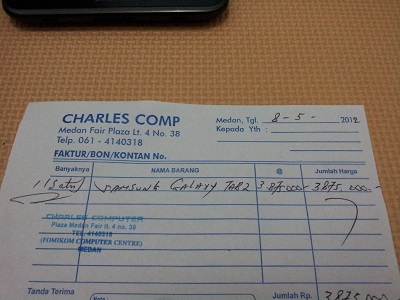 CHARLES COMP
Medan Fair Plaza Lt. 4 No. 38
Telp. 061 - 4140318
Medan, Tgl. 8 - 5 - 2012
Kepada Yth :
FAKTUR/BON/KONTAN No.
Banyaknya NAMA BARANG @ Jumlah Harga
1 (Satu) SAMSUNG GALAXY TAB 2 3.875.000- 3875.000.-
CHARLES COMPUTER
Plaza Medan Fair lt. 4 no. 38
TEL. 4140318
(FOMIKOM COMPUTER CENTRE)
MEDAN
Tanda Terima Jumlah Rp. 3875.000